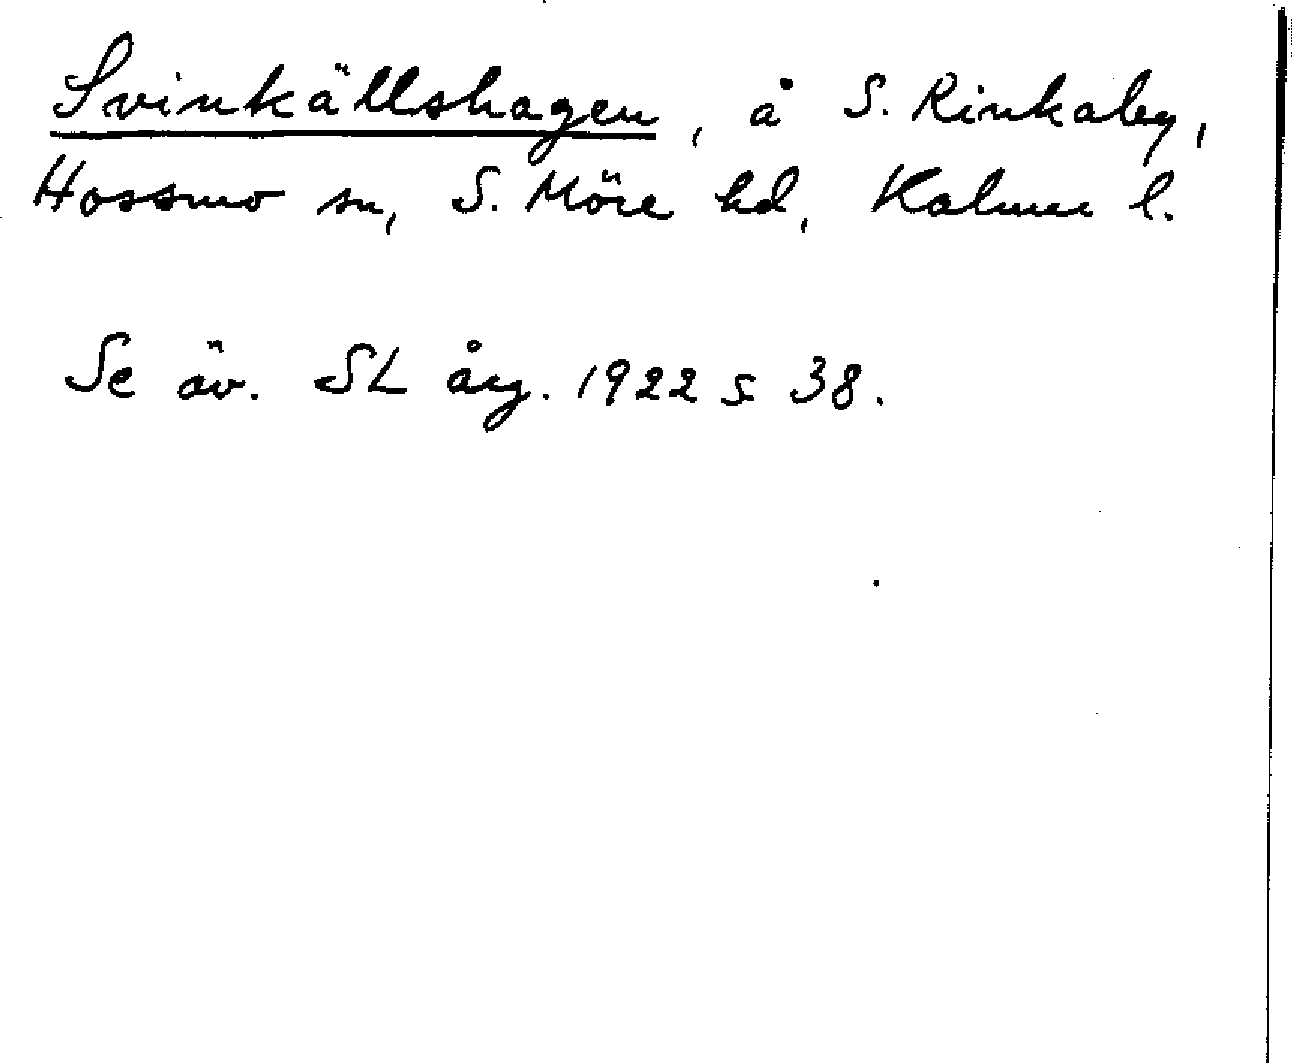 Svinkällshagen, å S. Rinkaby,
Hossmo sn, S. Möre hd, Kalmar l.
Se äv. SL årg. 1922 s 38.